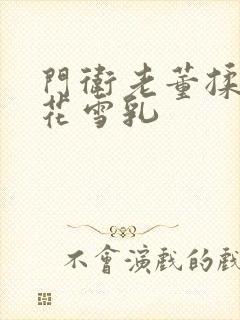 門衛老董揉
花雪乳
不會演戲的戲